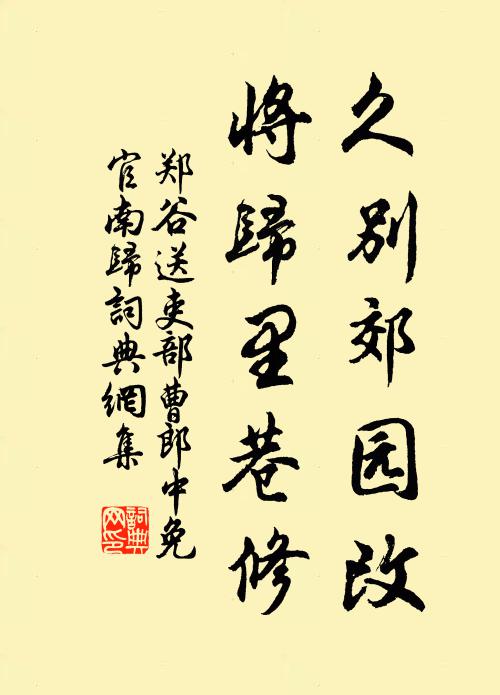 久别郊园改
將歸里巷修
郑谷送吏部曹郎中免
官南歸詞典網集
詞典
网印